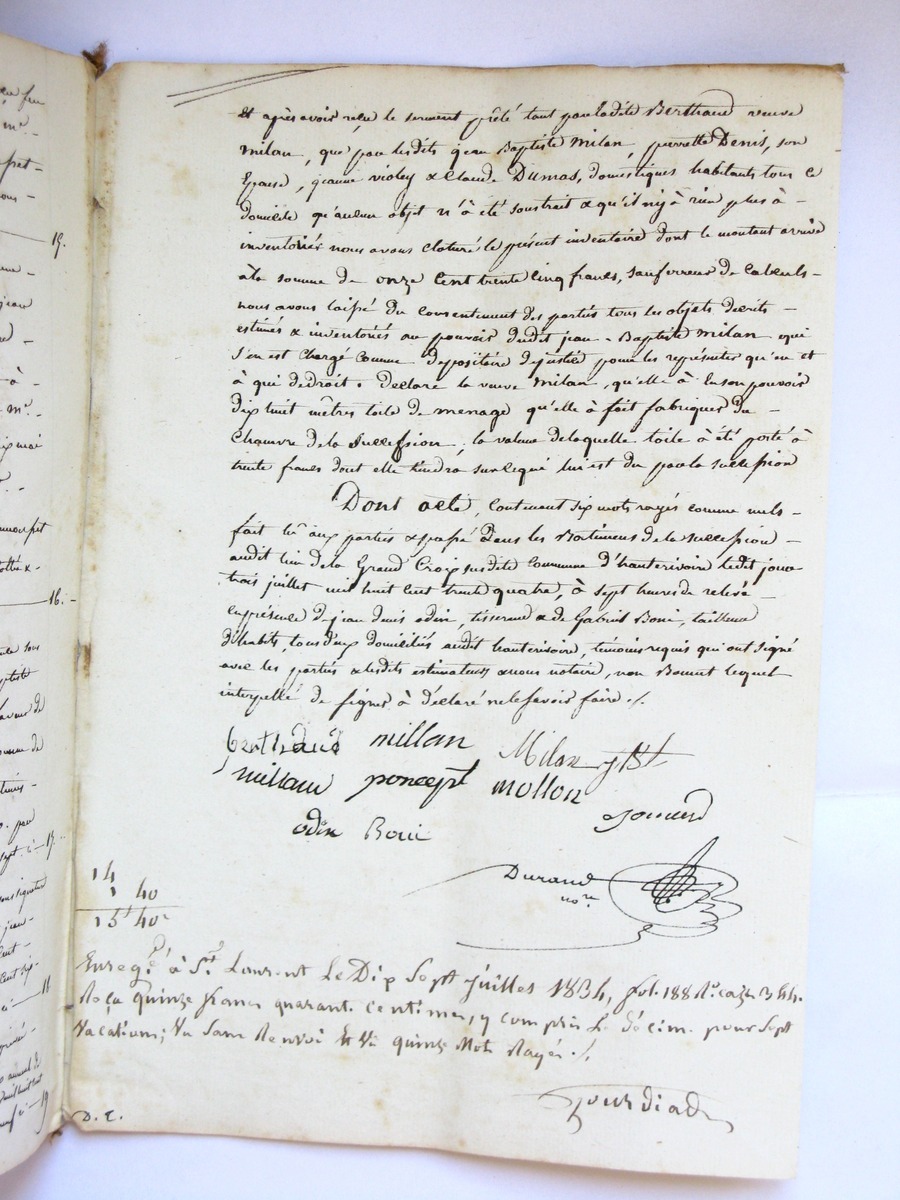 Et après avoir reçu le serment prêté tant par ladite Berthaud veuve
milan, que par lesdits jean Baptiste Milan, pierrette Denis, son
Epouse, jeanne violey & Claude Dumas, domestiques habitants tous ce
domicile qu'aucun objet n'à été soustrait & qu'il n'y à rien plus à -
inventorier nous avons cloturé le présent inventaire dont le montant arrive
à la somme de onze cent trente cinq francs, sauf erreur de calculs -
nous avons laissé du consentement des parties tous les objets décrits -
estimés & inventoriés au pouvoir dudit jean - Baptiste milan qui
s'en est chargé comme dépositaire de justice pour les représenter qu'en et
à qui de droit. déclare la veuve milan, qu'elle à en son pouvoir
dix huit mètres toile de menage qu'elle à fait fabriquer du -
chanvre de la succession, la valeur de laquelle toile à été porté à
trente francs dont elle tiendra sur ce qui lui est du par la succession
Dont acte, contenant six mots rayés comme nuls -
fait lû aux parties & passé dans les Batimens de la succession -
audit lieu de la Grand Croix susdite commune d'hauterivoire ledit jour
trois juillet mil huit cent trente quatre, à sept heures de relevé -
en présence de jean denis odin, tisserand & de Gabriel Boni, tailleur
d'habits, tous deux domiciliés audit hauterivoire, témoins requis qui ont signé
avec les parties & lesdits estimateurs & nous notaire, non lequel
interpellé de signer à déclaré ne le savoir faire ./.
berthaud millan Milan jBt
millan poncept mollon
odin Boni
Durand
nore
14
1 40
15f 40c
Enregé à St Laurent Le Dix Sept juillet 1834, fol. 188 Ro. case 3 &4.
Reçu quinze francs quarant centimes, y compris Le décim. pour Sept
Vacations; Vu Sans Renvoi Et Vu quinze Mots Rayés ./.
jourdiad
D. E.
15.
16. -